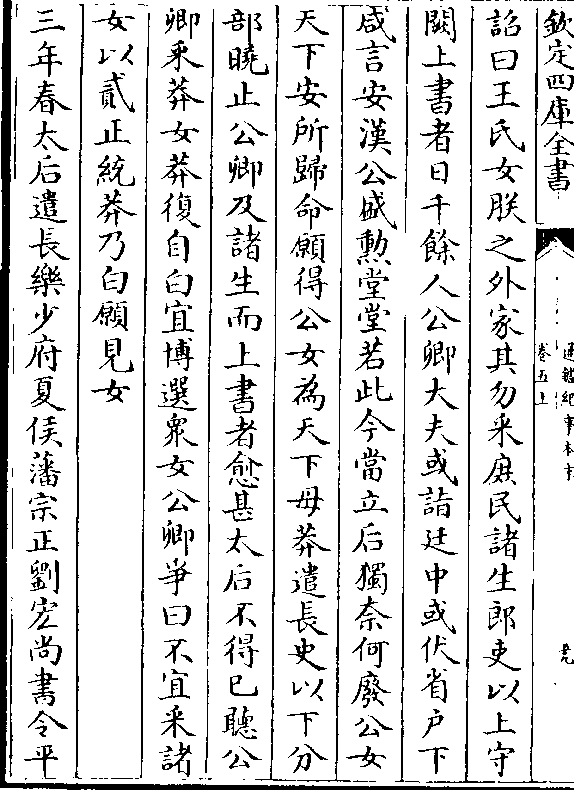 欽定四庫全書
通鑑紀事本末
卷五上
詔曰王氏女朕之外家其勿采庶民諸生郎吏以上守
闕上書者日千餘人公卿大夫或詣廷中或伏省户下
咸言安漢公盛勲堂堂若此今當立后獨奈何廢公女
天下安所歸命願得公女為天下母莽遣長史以下分
部曉止公卿及諸生而上書者愈甚太后不得已聽公
卿采莽女莽復自白宜博選衆女公卿爭曰不宜采諸
女以貳正統莽乃白願見女
三年春太后遣長樂少府夏侯藩宗正劉宏尚書令平